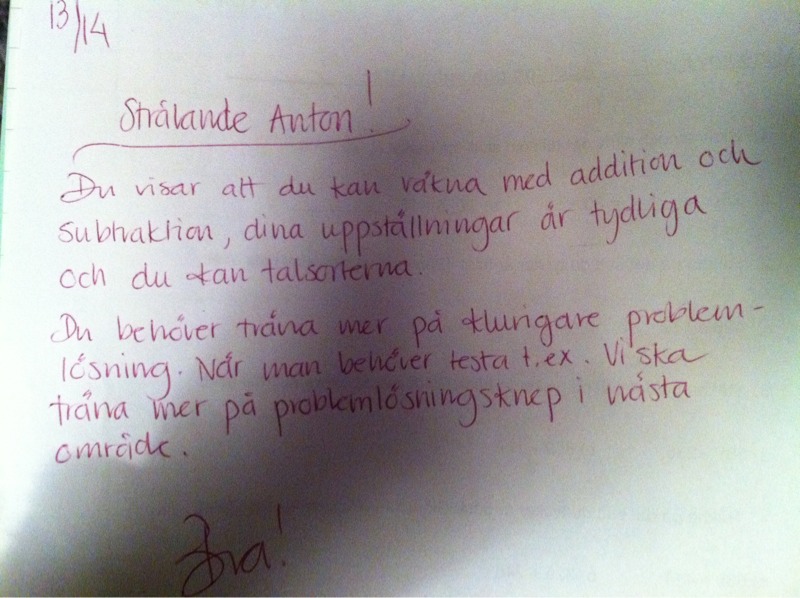 13/14
Strålande Anton!
Du visar att du kan räkna med addition och
subtraktion, dina uppställningar är tydliga
och du kan talsorterna.
Du behöver träna mer på klurigare problem-
lösning. När man behöver testa t.ex. Vi ska
träna mer på problemlösningsknep i nästa
område.
Bra!